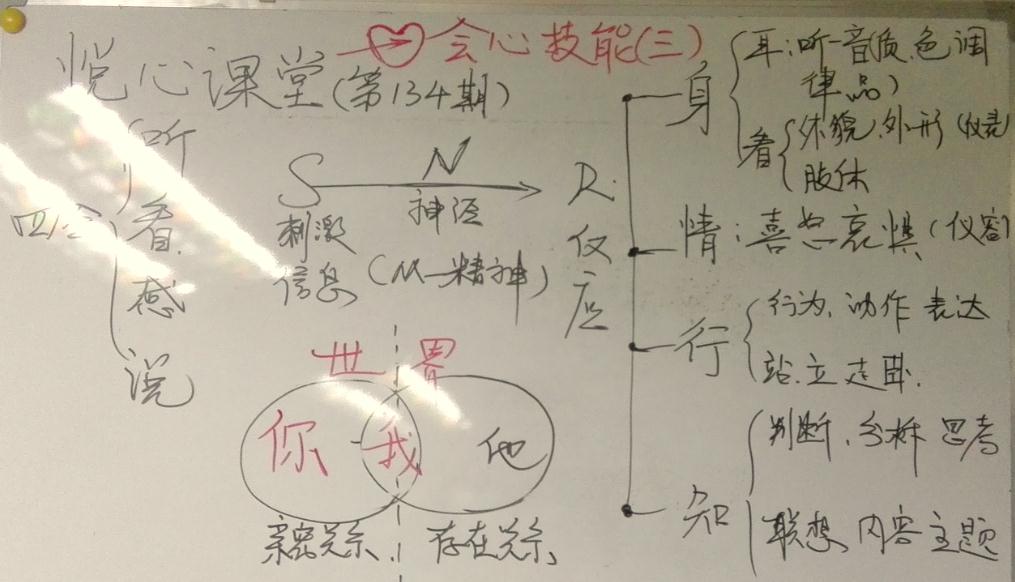 悦心课堂
(第134期)
会心技能(三)
四会
听
看
感
说
S
N
R
刺激
信息
神经
(M—精神)
反应
身
耳:听—音(质.色调
律品)
看
体貌.外形(仪表)
肢体
情:喜怒哀惧(仪容)
行
行为、动作 表达
站.立走卧.
知
判断、分析 思考
联想、内容主题
世界
你
我
他
亲密关系
存在关系